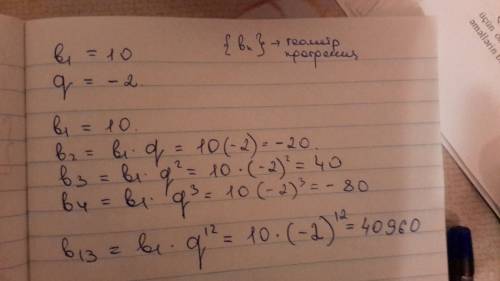 b₁ = 10 {bₙ} → геометр
прогрессия
q = -2.
b₁ = 10.
b₂ = b₁ · q = 10(-2) = -20.
b₃ = b₁ · q² = 10 · (-2)² = 40
b₄ = b₁ · q³ = 10(-2)³ = -80
b₁₃ = b₁ · q¹² = 10 · (-2)¹² = 40960
üçün